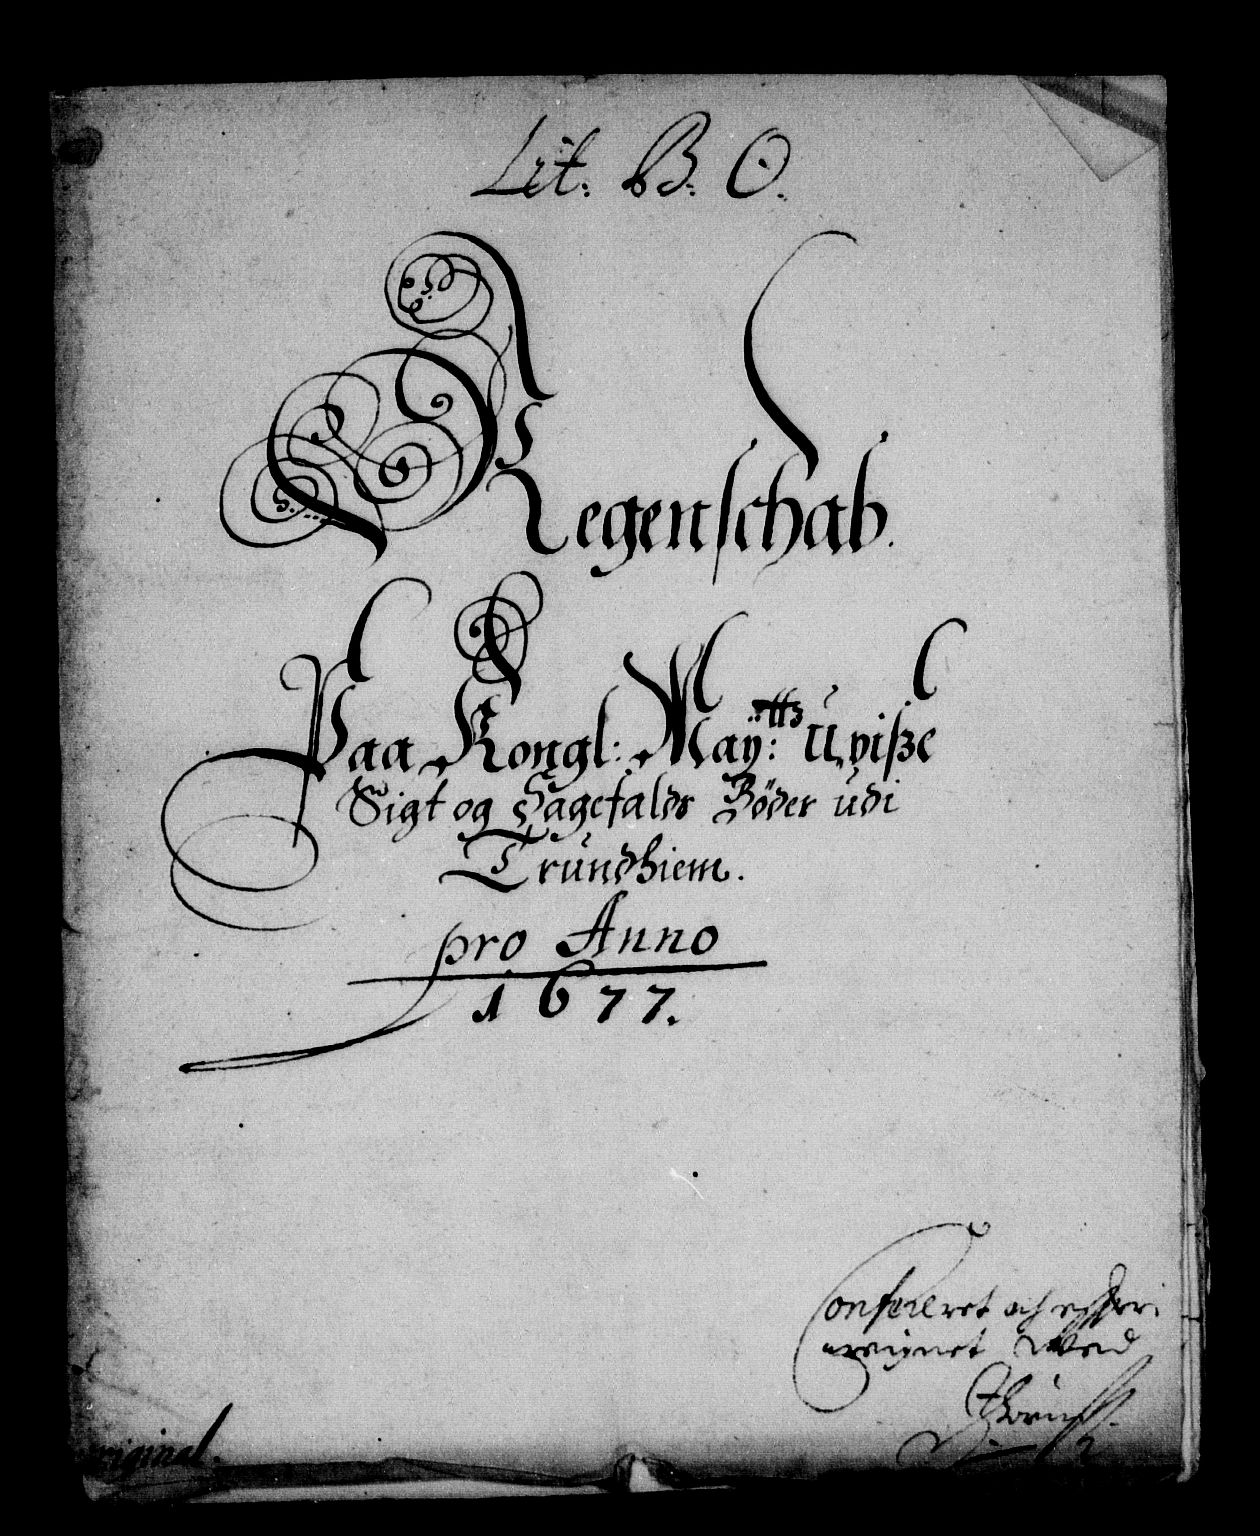 Lit: B: O.
Regenschab.
Paa Kongl: Maÿ:tts Uviße
Sigt og Sagefalds Böder udi
Trundhiem.
pro Anno
1677.
och
Original.